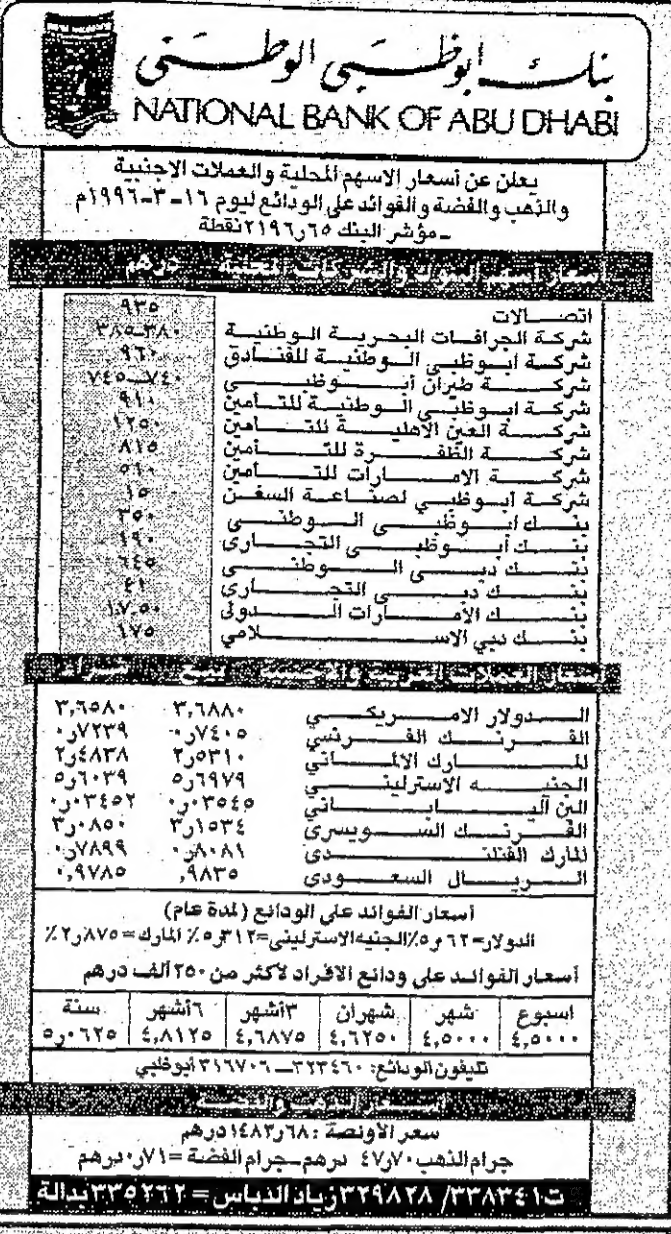 بنك أبوظبي الوطني
NATIONAL BANK OF ABU DHABI
يعلن عن أسعار الاسهم المحلية والعملات الاجنبية
والذهب والفضة والفوائد على الودائع ليوم ١٦-٣-١٩٩٦م
ـ مؤشر البنك ٦٥ر٢١٩٦ نقطة
أسعار أسهم البنوك والشركات المحلية درهم
اتصــالات ٩٣٥
شركة الجرافات البحرية الوطنية ٣٨٠ـ٣٨٥
شركة ابوظبي الوطنية للفنادق ٩٦٠
شركة طيران أبوظبي ٧٤٠ـ٧٤٥
شركة ابوظبي الوطنية للتأمين ٩١٠
شركة العين الاهلية للتامين ١٢٥٠
شركة الظفرة للتأمين ٨١٥
شركة الامارات للتأمين ٥٦٠
شركة أبوظبي لصناعة السفن ١٥
بنك ابوظبي الوطني ٣٥٠
بنك أبوظبي التجارى ١٩٠
بنك دبي الوطني ٦٤٥
بنك دبي التجارى ٤١
بنك الامارات الدولى ١٧٠٥٠
بنك دبي الاسلامي ١٧٥
أسعار العملات العربية والاجنبية للبيع شراء
الدولار الامريكي ٣,٦٨٨٠ ٣,٦٥٨٠
الفرنك الفرنسي ٧٤٠٥ر٠ ٧٢٣٩ر٠
المارك الالماني ٥٣١٠ر٢ ٤٨٣٨ر٢
الجنيه الاسترليني ٦٩٧٩ر٥ ٦٠٣٩ر٥
الين اليابانى ٠٣٥٤٥ر٠ ٠٣٤٥٢ر٠
الفرنك السويسرى ١٥٣٤ر٣ ٠٨٥٠ر٣
المارك الفنلندى ٨٠٨١ر٠ ٧٨٩٩ر٠
الريال السعودى ,٩٨٣٥ ٠,٩٧٨٥
أسعار الفوائد على الودائع (لمدة عام)
الدولار=٦٢ر٥٪ الجنيه الاسترلينى=٣١٢ر٥٪ المارك=٨٧٥ر٢٪
أسعار الفوائد على ودائع الافراد لأكثر من ٢٥٠ ألف درهم
اسبوع شهر شهران ٣أشهر ٦أشهر سنة
٤,٥٠٠٠ ٤,٥٠٠٠ ٤,٦٢٥٠ ٤,٦٨٧٥ ٤,٨١٢٥ ٠٦٢٥ر٥
تليفون الودائع: ٣٢٣٤٦٠ــ ٣١٦٧٠٦ أبوظبي
أسعار الذهب والفضة
سعر الاونصة :٦٨ر١٤٨٣ درهم
جرام الذهب ٧٠ر٤٧ درهم ـ جرام الفضة =٧١ر٠ درهم
ت٣٣٨٣٤١/ ٣٢٩٨٢٨ زياد الدباس = ٣٣٥٢٦٢ بدالة